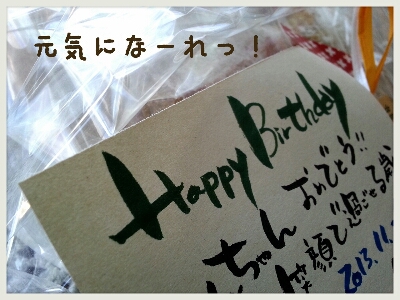 元気になーれっ！
Happy Birthday
ちゃん おめでとう!!
笑顔で過ごせる歳
2013.11.